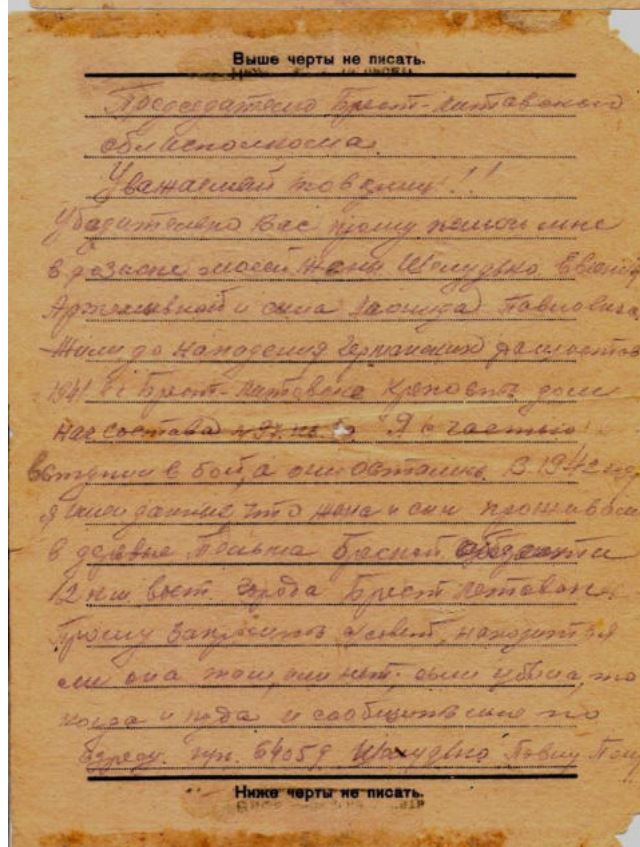 Выше черты не писать.
Председателю Брест-Литовского
облисполкома.
Уважаемый товарищ!!
Убедительно Вас прошу помочь мне
в розыске моей жены Шелудько
Артемьевной и сына Леонида Павловича,
Жили до нападения Германских фашистов
1941 г. Брест-Литовска крепость дом
нач состава № 5. Я с частью
вступил в бой, а они остались. В 1942 году
я имел данные что жена и сын проживали
в деревне Брестской области
12 км вост. города Брест Литовска
Прошу запросить с/совет, находится
ли она там, или нет, если убыла, то
когда и куда и сообщить мне по
адресу. п/п. 64059 Шелудько Павлу
Ниже черты не писать.